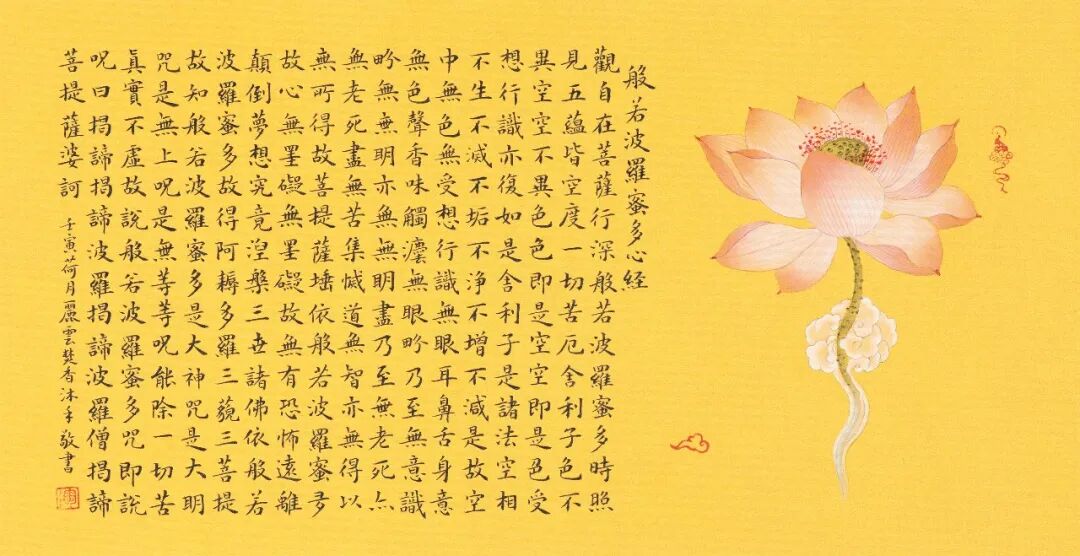 般若波羅蜜多心経
觀自在菩薩行深般若波羅蜜多時照
見五蘊皆空度一切苦厄舍利子色不
異空空不異色色即是空空即是色受
想行識亦復如是舍利子是諸法空相
不生不滅不垢不淨不增不減是故空
中無色無受想行識無眼耳鼻舌身意
無色聲香味觸灋無眼畍乃至無意識
畍無無明亦無無明盡乃至無老死亦
無老死盡無苦集滅道無智亦無得以
無所得故菩提薩埵依般若波羅蜜多
故心無罣礙無罣礙故無有恐怖遠離
顛倒夢想究竟涅槃三世諸佛依般若
波羅蜜多故得阿耨多羅三藐三菩提
故知般若波羅蜜多是大神咒是大明
咒是無上呪是無等等呪能除一切苦
眞實不虛故說般若波羅蜜多咒即說
呪曰揭諦揭諦波羅揭諦波羅僧揭諦
菩提薩婆訶
壬寅荷月麗雲焚香沐手敬書